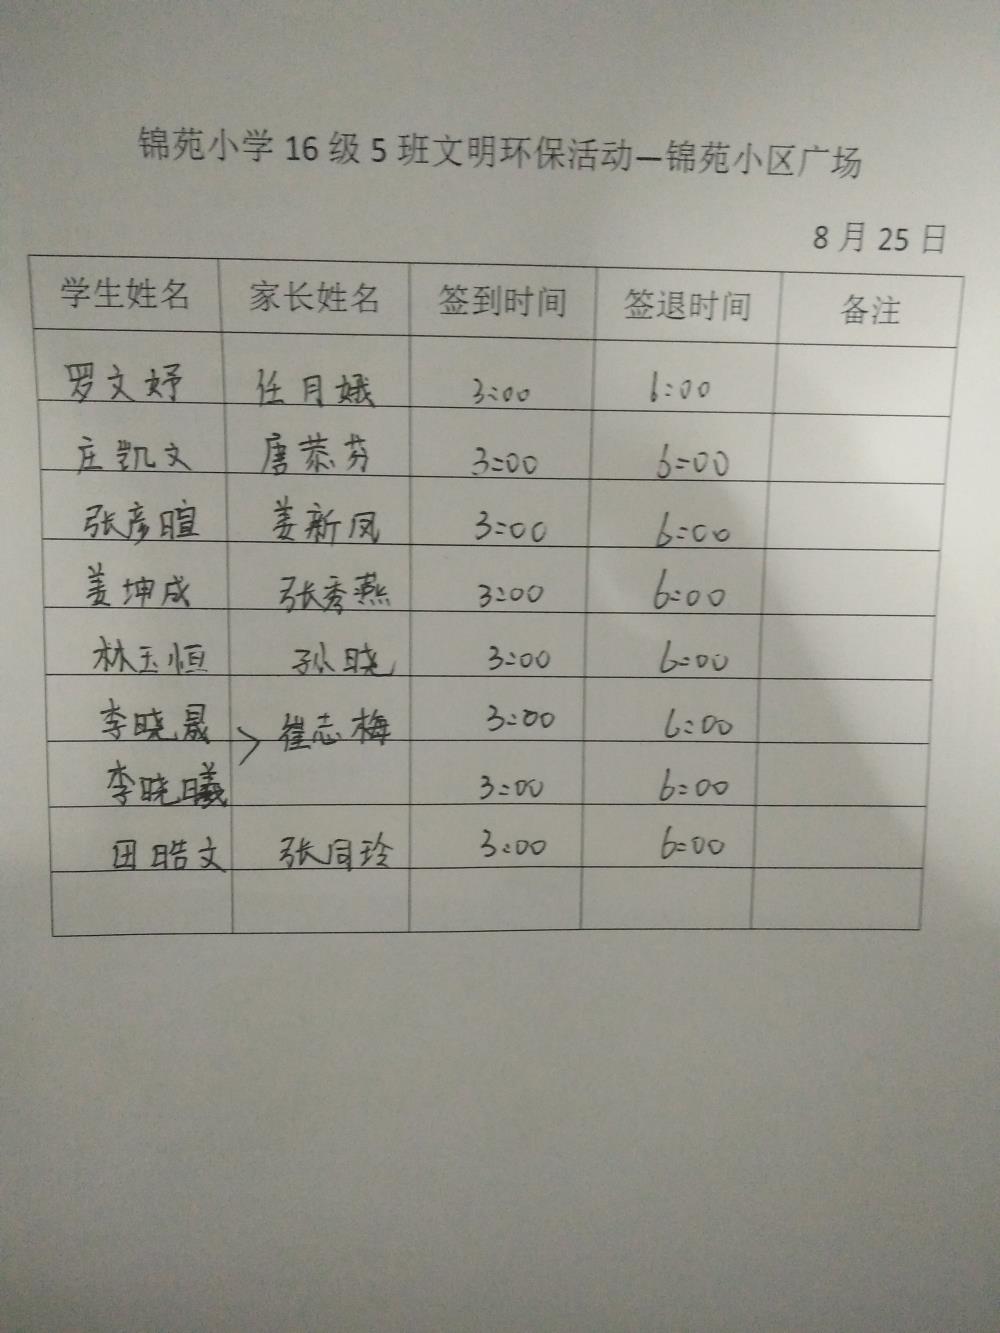 锦苑小学16级5班文明环保活动—锦苑小区广场
8月25日
学生姓名 家长姓名 签到时间 签退时间 备注
罗文妤 任月娥 3:00 6:00
庄凯文 唐恭芬 3:00 6:00
张彦暄 姜新凤 3:00 6:00
姜坤成 张秀燕 3:00 6:00
林玉恒 孙晓 3:00 6:00
李晓晟 > 崔志梅 3:00 6:00
李晓曦 3:00 6:00
田晧文 张同玲 3:00 6:00